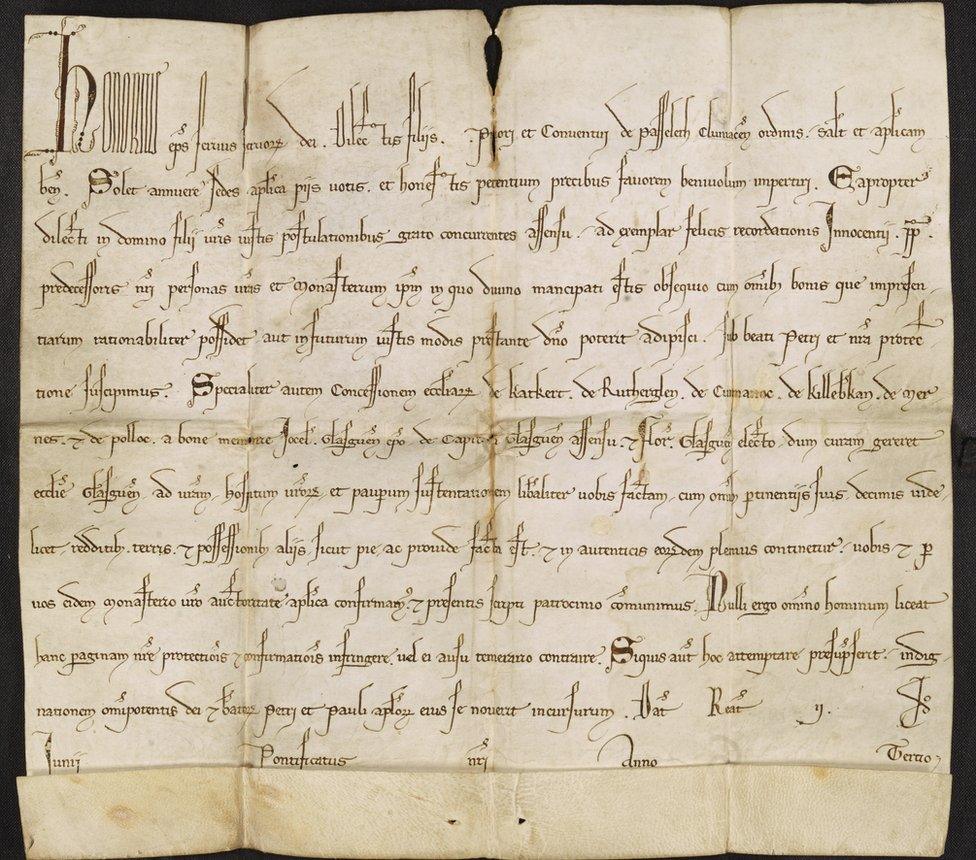 Honorius eps servus servorz dei. Dilectis filijs. Priori et Conventui de Passeleth Cluniaceñ ordinis. salt et aplicam
ben. Solet annuere sedes aplica pijs votis. et honestis petentium precibus favorem benivolum impertiri. Eapropter
dilecti in domino filii vris iustis postulationibus grato concurrentes assensu. ad exemplar felicis recordationis Innocentii. pp.
predecessoris nri personas vras et monasterium ipm in quo divino mancipati estis obsequio cum omib bonis que impresen-
tiarum rationabiliter possidet aut infuturum iustis modis prestante dno poterit adipisci. sub beati Petri et nra protec-
tione suscipimus. Specialiter autem Concessionem eccliarz de Katkert. de Rutherglen. de Cumnoc. de killebkan. de Mer
nes. ⁊ de polloc. a bone memorie Jocel. Glasgueñ epo de Capitli Glasgueñ assensu. ⁊ Flor. Glasgueñ electo. dum curam gereret
ecclie Glasgueñ. ad vram. hospitum vrorz. et paupum sustentationem libaliter vobis factam. cum omib ptinentijs suis. decimis vide-
licet. redditib. terris. ⁊ possessionib alijs sicut pie ac provide facta est. ⁊ in autenticis eorzdem plenius continetur. vobis ⁊ p
vos eidem monasterio vro auctoritate aplica confirmam. ⁊ presentis scripti patrocinio comunimus. Nulli ergo omino hominum liceat
hanc paginam nre protectiois ⁊ confirmatiois infringere. vel ei ausu temerario contraire. Siquis aut hoc attemptare presupserit. indig-
nationem omipotentis dei ⁊ beatorz Petri et Pauli aplorz eius se noverit incursurum. Dat Reat ij.
Junii Pontificatus nri Anno Tertio